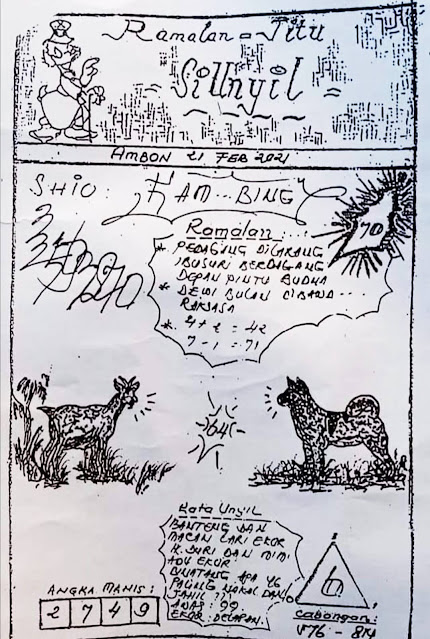 Ramalan = Jitu
= Si Unyil =
AMBON 21 FEB 2021
SHIO: KAM...BING
10
Ramalan:
* PEDAGING DILARANG
BERDAGANG
DEPAN PINTU BUDHA
* DEWI BULAN DIBAND....
RAKSASA
* 4 + 2 = 42
7 - 1 = 71
64
Kata Unyil
BANTENG DAN
MACAN CARI EKOR
K. DURI DAN MIMI
ADU EKOR
BINATANG APA YG
PALING NAKAL DAN
JAHIL ??
AWAS: 99
EKOR: DELAPAN.
6
ANGKA MANIS:
2 7 4 9
Cabangan: